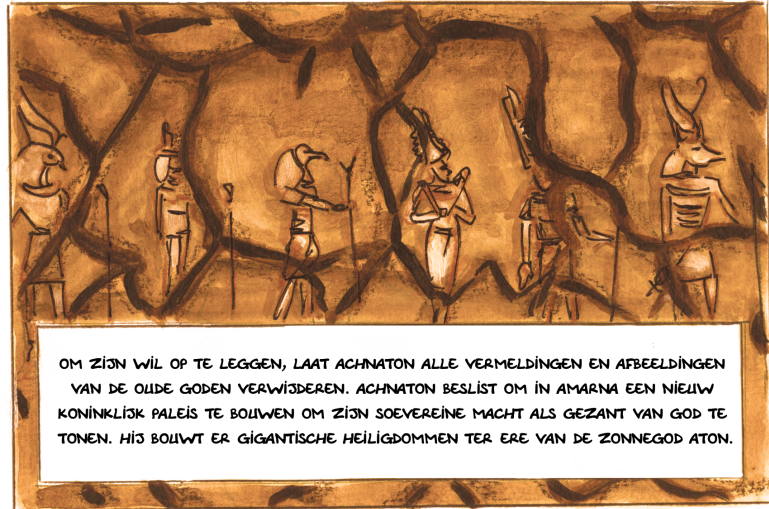 OM ZIJN WIL OP TE LEGGEN, LAAT ACHNATON ALLE VERMELDINGEN EN AFBEELDINGEN
VAN DE OUDE GODEN VERWIJDEREN. ACHNATON BESLIST OM IN AMARNA EEN NIEUW
KONINKLIJK PALEIS TE BOUWEN OM ZIJN SOEVEREINE MACHT ALS GEZANT VAN GOD TE
TONEN. HIJ BOUWT ER GIGANTISCHE HEILIGDOMMEN TER ERE VAN DE ZONNEGOD ATON.